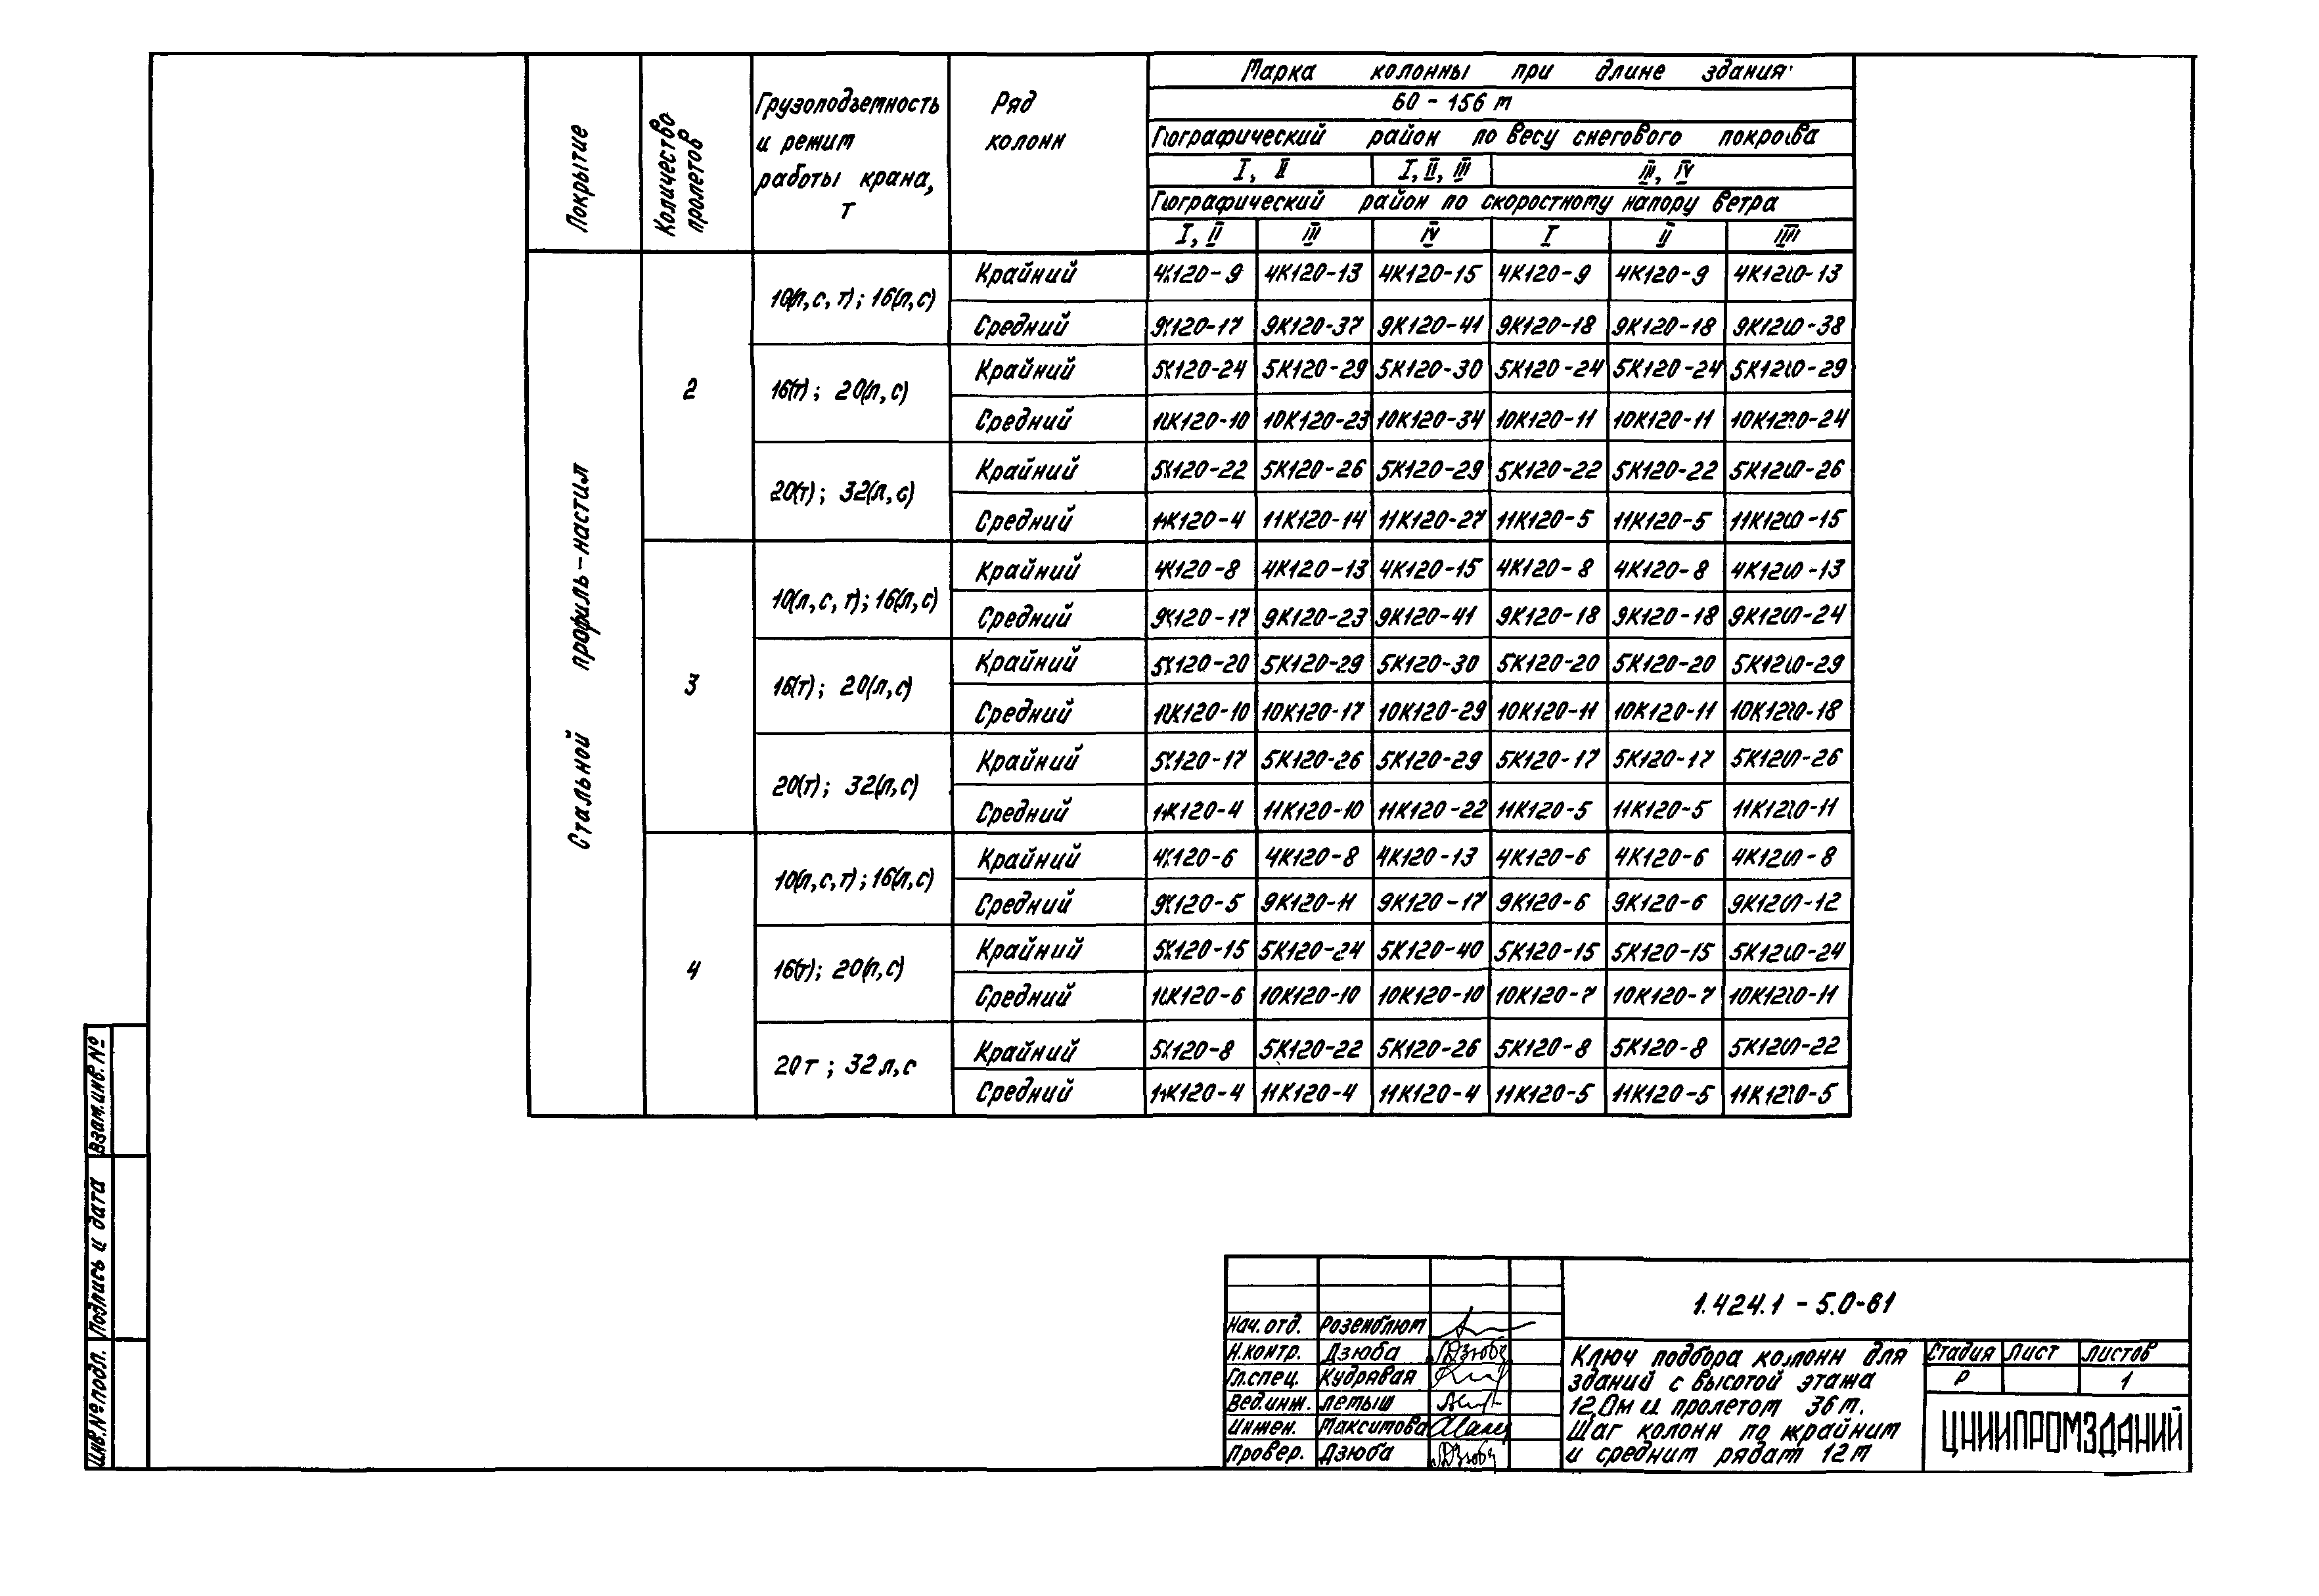 Марка колонны при длине здания
60 - 156 м
Географический район по весу снегового покрова
I, II | I, II, III | III, IV
Географический район по скоростному напору ветра
Покрытие | Количество пролетов | Грузоподъемность и режим работы крана, т | Ряд колонн | I, II | III | IV | I | II | III
Стальной профиль-настил
2
10(л,с,т); 16(л,с)
Крайний 4К120-9 4К120-13 4К120-15 4К120-9 4К120-9 4К120-13
Средний 9К120-17 9К120-37 9К120-41 9К120-18 9К120-18 9К120-38
16(т); 20(л,с)
Крайний 5К120-24 5К120-29 5К120-30 5К120-24 5К120-24 5К120-29
Средний 10К120-10 10К120-23 10К120-34 10К120-11 10К120-11 10К120-24
20(т); 32(л,с)
Крайний 5К120-22 5К120-26 5К120-29 5К120-22 5К120-22 5К120-26
Средний 11К120-4 11К120-14 11К120-27 11К120-5 11К120-5 11К120-15
3
10(л,с,т); 16(л,с)
Крайний 4К120-8 4К120-13 4К120-15 4К120-8 4К120-8 4К120-13
Средний 9К120-17 9К120-23 9К120-41 9К120-18 9К120-18 9К120-24
16(т); 20(л,с)
Крайний 5К120-20 5К120-29 5К120-30 5К120-20 5К120-20 5К120-29
Средний 10К120-10 10К120-17 10К120-29 10К120-11 10К120-11 10К120-18
20(т); 32(л,с)
Крайний 5К120-17 5К120-26 5К120-29 5К120-17 5К120-17 5К120-26
Средний 11К120-4 11К120-10 11К120-22 11К120-5 11К120-5 11К120-11
4
10(л,с,т); 16(л,с)
Крайний 4К120-6 4К120-8 4К120-13 4К120-6 4К120-6 4К120-8
Средний 9К120-5 9К120-11 9К120-17 9К120-6 9К120-6 9К120-12
16(т); 20(л,с)
Крайний 5К120-15 5К120-24 5К120-40 5К120-15 5К120-15 5К120-24
Средний 10К120-6 10К120-10 10К120-10 10К120-7 10К120-7 10К120-11
20т; 32л,с
Крайний 5К120-8 5К120-22 5К120-26 5К120-8 5К120-8 5К120-22
Средний 11К120-4 11К120-4 11К120-4 11К120-5 11К120-5 11К120-5
Взам.инв.№
Подпись и дата
Инв.№подл.
1.424.1 - 5.0-61
Нач.отд. Розенблюм
Н.контр. Дзюба
Гл.спец. Кудрявая
Вед.инж. Летыш
Инжен. Максимова
Провер. Дзюба
Ключ подбора колонн для
зданий с высотой этажа
12,0м и пролетом 36м.
Шаг колонн по крайним
и средним рядам 12м
Стадия Лист Листов
Р 1
ЦНИИПРОМЗДАНИЙ